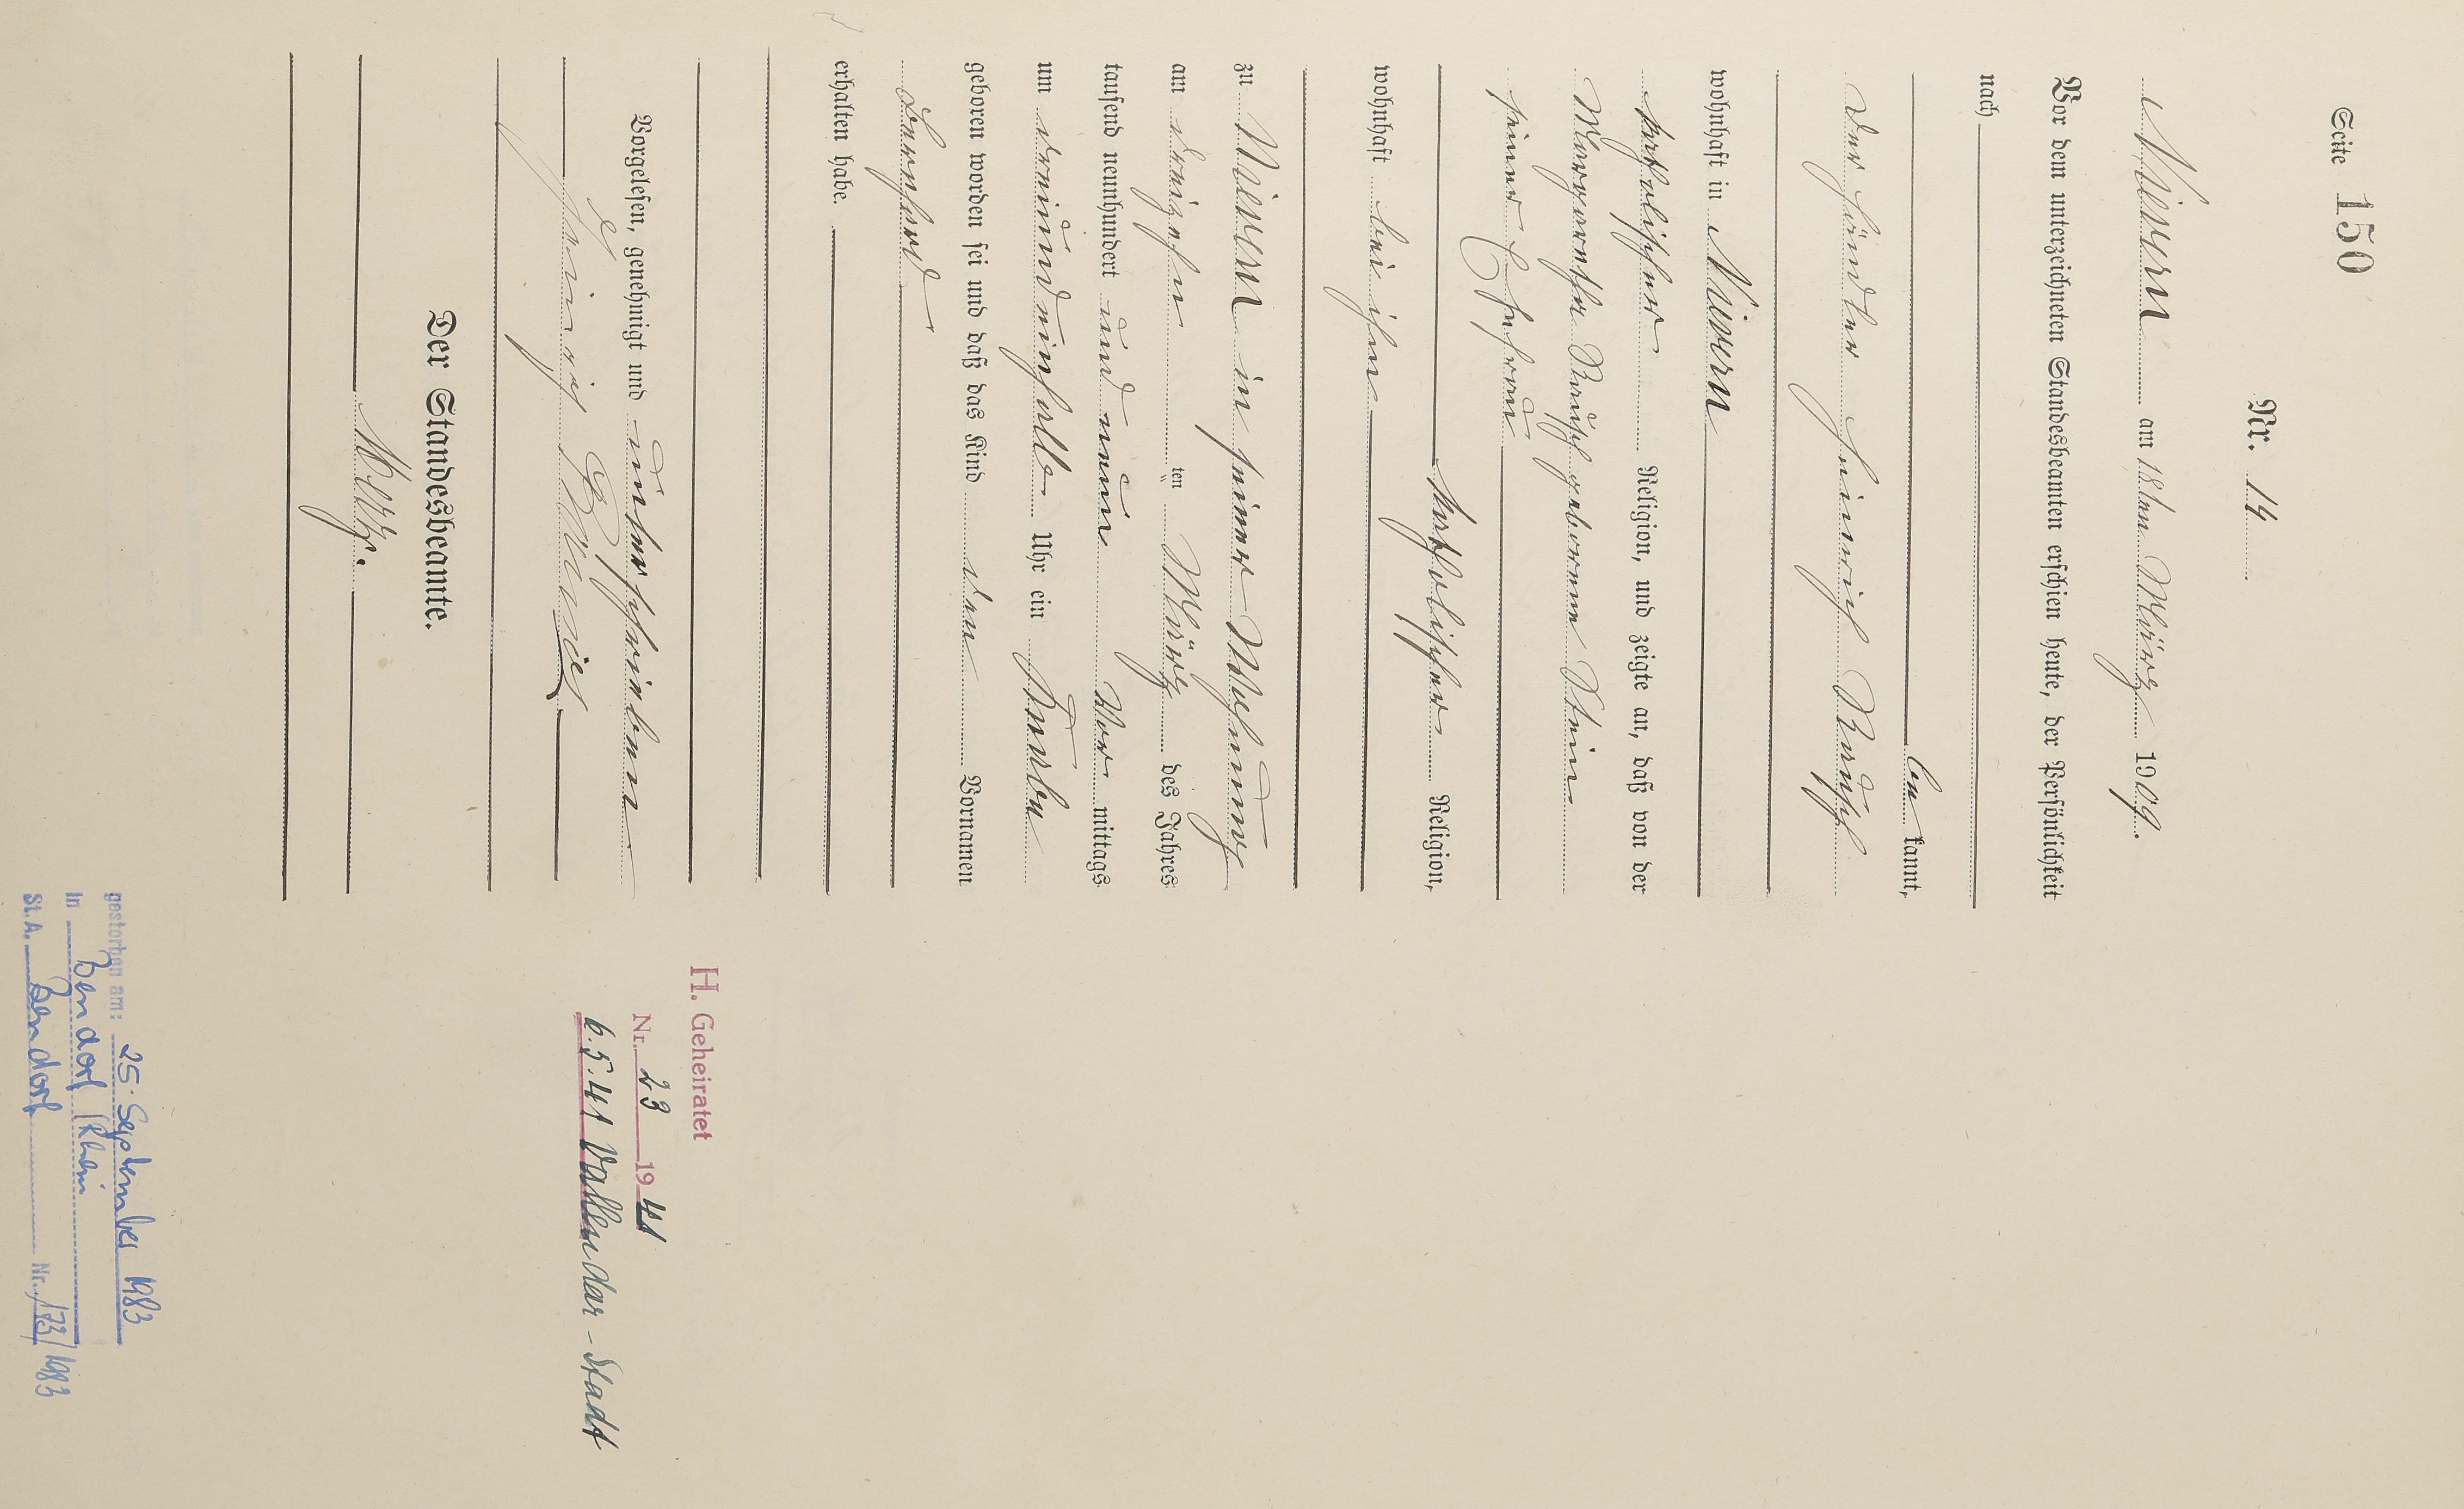 Seite 150
Nr. 14
Nievern am 18ten März 1909.
Vor dem unterzeichneten Standesbeamten erschien heute, der Persönlichkeit
nach
bekannt,
der Händler Heinrich
wohnhaft in Nievern
katholischer Religion, und zeigte an, daß von der
Margarethe geborene Stein
seiner Ehefrau
katholischer Religion,
wohnhaft bei ihm
zu Nievern in seiner Wohnung
am dreizehn ten März des Jahres
tausend neunhundert und neun Vor mittags
um dreiundeinhalb Uhr ein Knabe
geboren worden sei und daß das Kind den Vornamen
Bernhard
erhalten habe.
Vorgelesen, genehmigt und unterschrieben
Heinrich
Der Standesbeamte.
H. Geheiratet
Nr. 23 1941
6.5.41 Vallendar-Stadt
gestorben am: 25. September 1983
in Bendorf/Rhein
St. A. Bendorf Nr. 173/1983